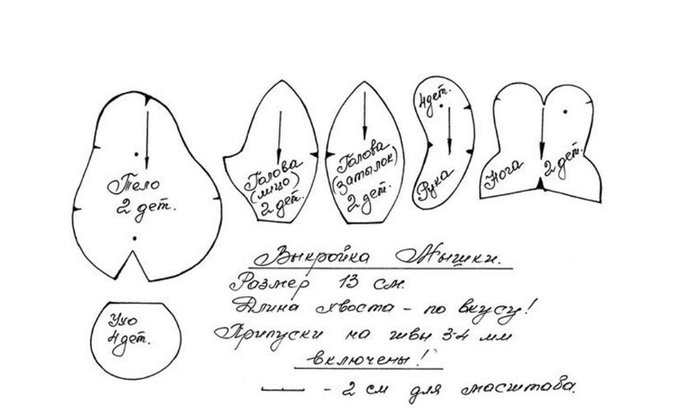 Тело
2 дет.
Голова
(лицо)
2 дет.
Голова
(затылок)
2 дет.
4 дет.
Рука
Нога 2 дет.
Ухо
4 дет.
Выкройка Мышки.
Размер 13 см.
Длина хвоста - по вкусу!
Припуски на швы 3-4 мм
включены!
- 2 см для масштаба.